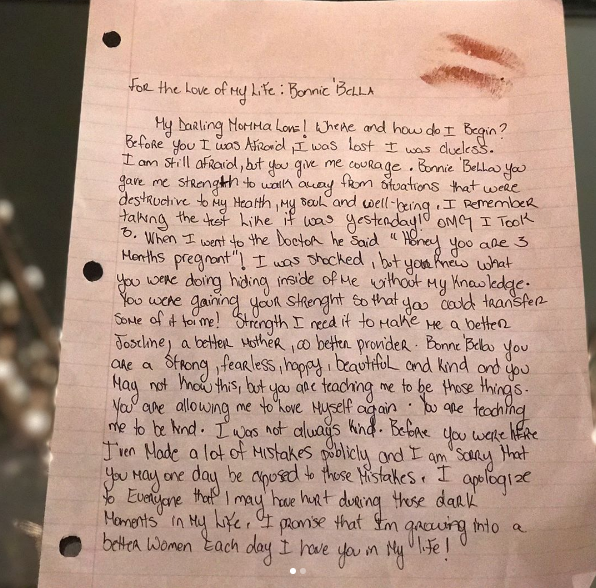 For the Love of My Life : Bonnie'Bella
My Darling Momma Love! Where and how do I Begin?
Before you I was Afraid, I was Lost I was clueless.
I am still afraid, but you give me courage. Bonnie'Bella you
gave me strength to walk away from situations that were
destructive to My Health, My Soul and well-being. I Remember
taking the test Like it was yesterday! OMG I Took
3. When I went to the Doctor he said "Honey you are 3
Months pregnant"! I was shocked, but you knew what
you were doing hiding inside of Me without My Knowledge.
You were gaining your strenght so that you could transfer
some of it to me! Strength I need it to Make Me a better
Joseline, a better Mother, a better provider. Bonnie'Bella you
are a Strong, fearless, happy, beautiful and kind and you
May not Know this, but you are teaching me to be those things.
You are allowing me to Love Myself again. You are teaching
me to be kind. I was not always kind. Before you were here
I'ven Made a lot of Mistakes publicly and I am Sorry that
you May one day be exposed to those Mistakes. I apologize
to Everyone that I may have hurt during those dark
Moments in My Life. I promise that I'm growing into a
better Women Each day I have you in My life!